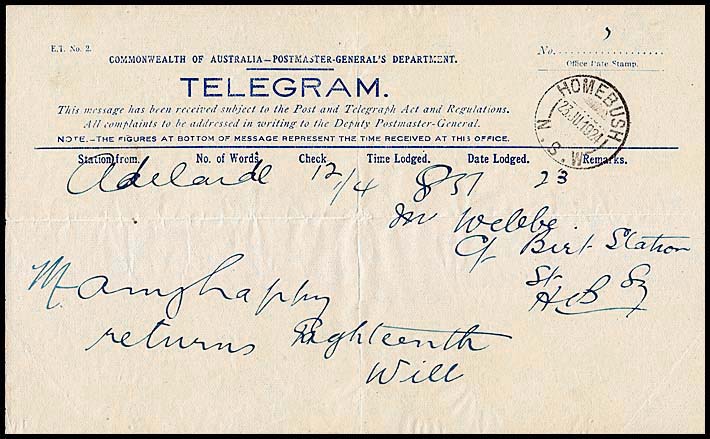 E.T. No. 2.
COMMONWEALTH OF AUSTRALIA—POSTMASTER-GENERAL'S DEPARTMENT.
No.
Office Date Stamp.
TELEGRAM.
This message has been received subject to the Post and Telegraph Act and Regulations.
All complaints to be addressed in writing to the Deputy Postmaster-General.
NOTE.—THE FIGURES AT BOTTOM OF MESSAGE REPRESENT THE TIME RECEIVED AT THIS OFFICE.
HOMEBUSH
N.S.W
Station from. No. of Words. Check Time Lodged. Date Lodged. Remarks.
Adelaide 12/4 851 23
Mr Webbe
C/ Birt Station
St
HB Sy
returns Eighteenth
Will